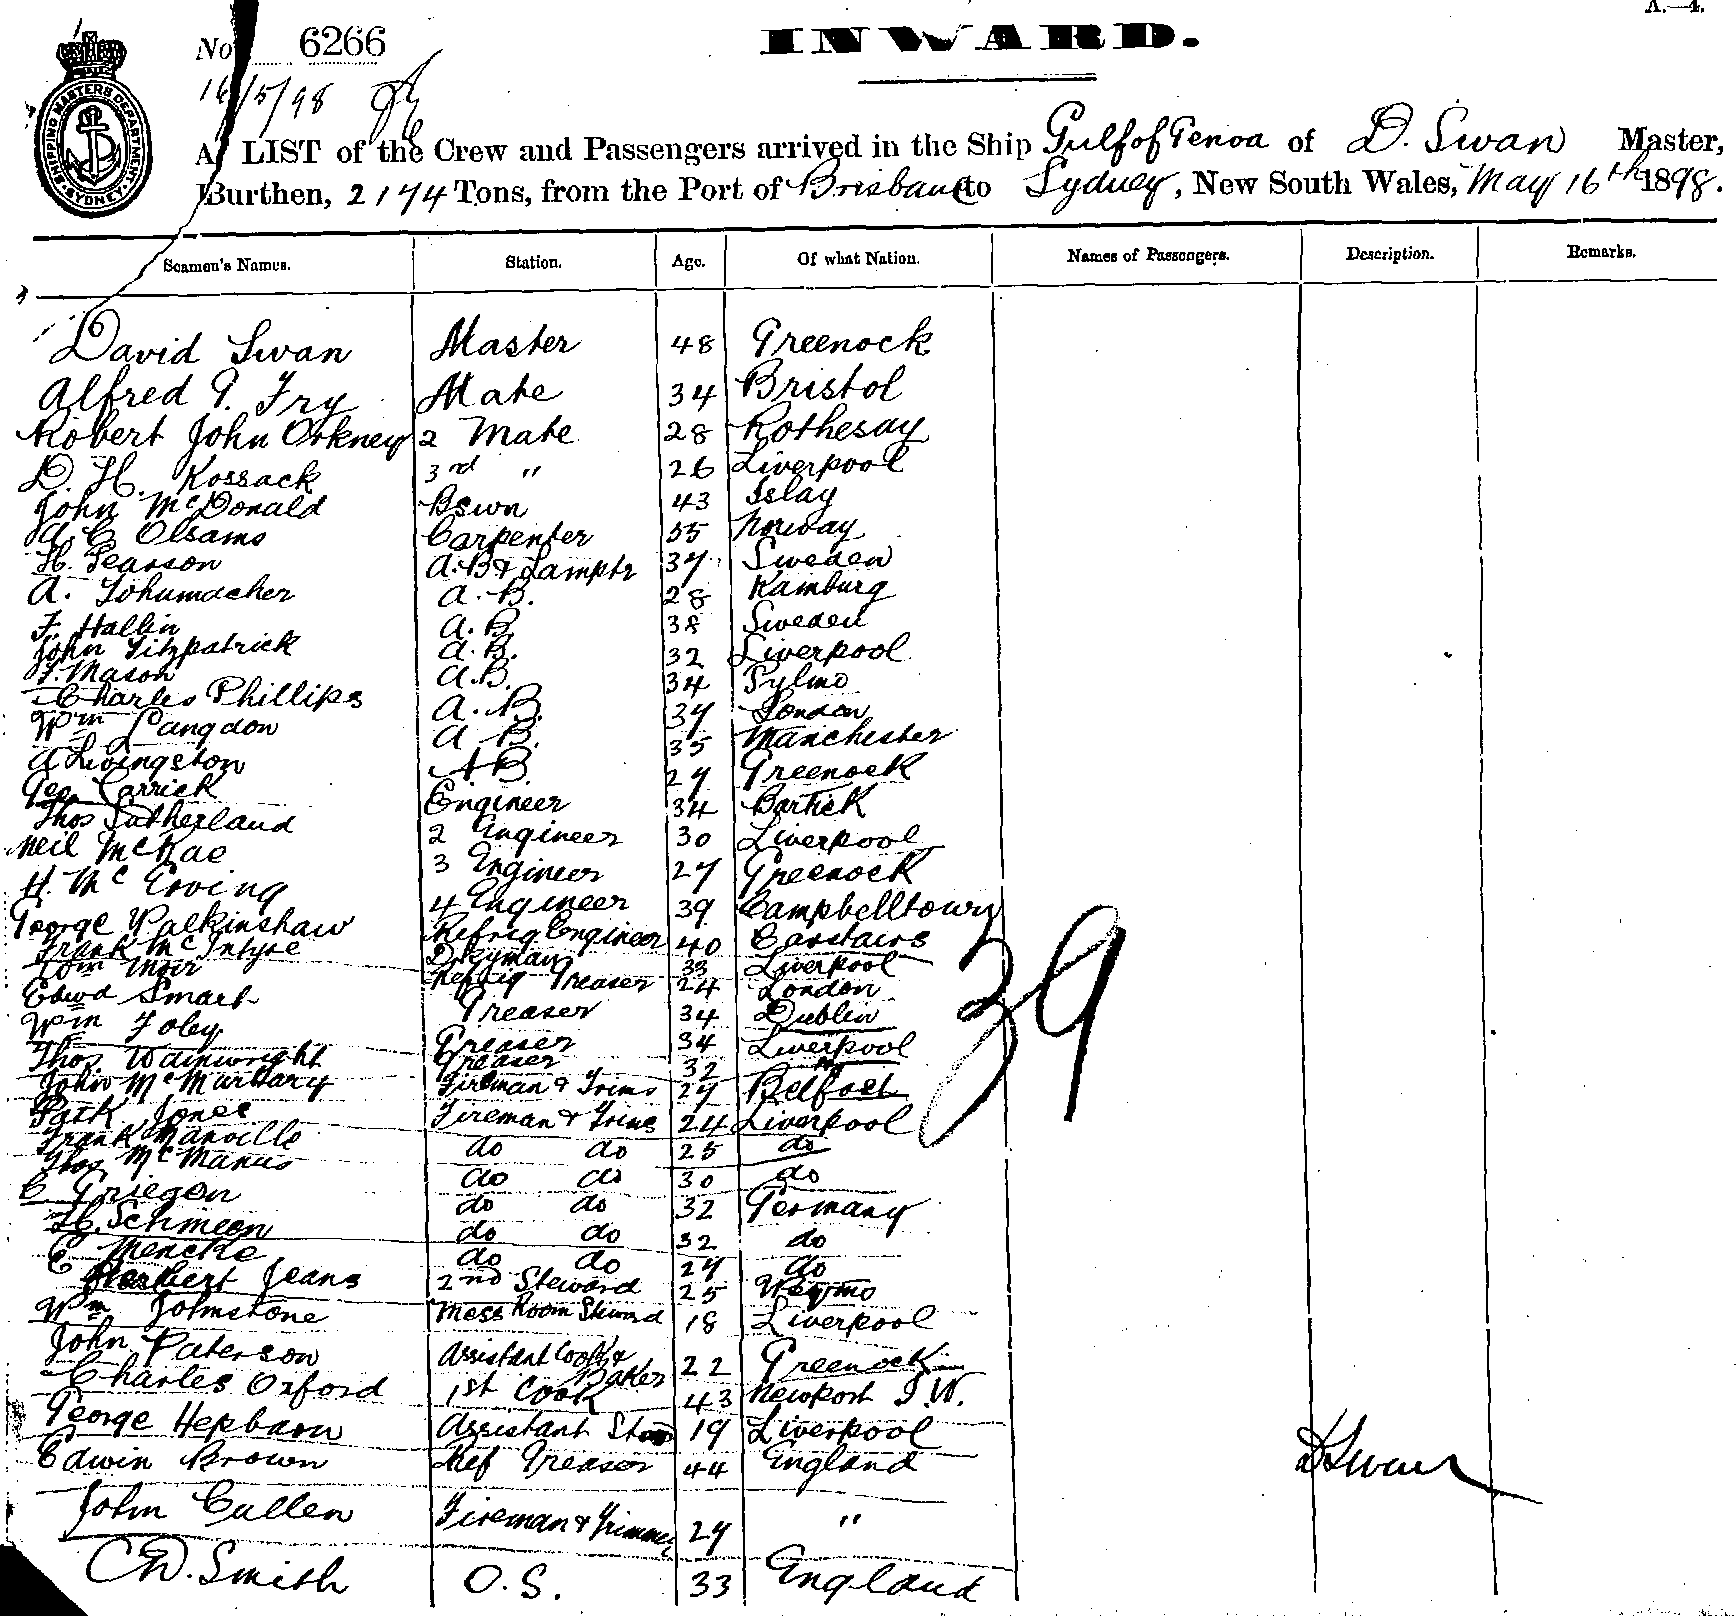 A.—4.
No 6266
INWARD.
16/5/98
SHIPPING MASTERS DEPARTMENT SYDNEY
A LIST of the Crew and Passengers arrived in the Ship Gulf of Genoa of D. Swan Master,
Burthen, 2174 Tons, from the Port of Brisbane to Sydney, New South Wales, May 16th 1898.
Seamen's Names. Station. Age. Of what Nation. Names of Passengers. Description. Remarks.
David Swan Master 48 Greenock
Alfred G. Fry Mate 34 Bristol
Robert John Orkney 2 Mate 28 Rothesay
D. H. Kossack 3rd " 26 Liverpool
John McDonald Bswn 43 Islay
A. C. Olsams Carpenter 55 Norway
H. Pearson A.B & Lamptr 37 Sweden
A. Schumacher A.B. 28 Hamburg
F. Hallin A.B. 38 Sweden
John Fitzpatrick A.B. 32 Liverpool
F. Mason A.B. 34
Charles Phillips A.B. 37 London
Wm Langdon A.B. 35 Manchester
A Livingston AB. 27 Greenock
Geo Carrick Engineer 34 Partick
Thos Sutherland 2 Engineer 30 Liverpool
Neil McRae 3 Engineer 27 Greenock
H. Mc Erving 4 Engineer 39 Campbelltown
George Walkinshaw Refrig Engineer 40 Carstairs
Frank McIntyre Dkeyman 33 Liverpool
Wm Moir Refrig Greaser 24 London
Edwd Smart Greaser 34 Dublin
Wm Foley Greaser 34 Liverpool
Thos Wainwright Greaser 32 "
John McMurtary Fireman & Trims 27 Belfast
Patk Jones Fireman & Trims 24 Liverpool
Frank Manville do do 25 do
Thos McManus do do 30 do
C Griegen do do 32 Germany
H. Schmeen do do 32 do
E Mencke do do 27 do
Herbert Jeans 2nd Steward 25
Wm Johnstone Mess Room Steward 18 Liverpool
John Paterson Assistant Cook & Baker 22 Greenock
Charles Oxford 1st Cook 43 Newport I.W.
George Hepburn Assistant Std 19 Liverpool
Edwin Brown Ref Greaser 44 England
John Cullen Fireman & Trimmer 27 "
C W. Smith O.S. 33 England
39
D Swan